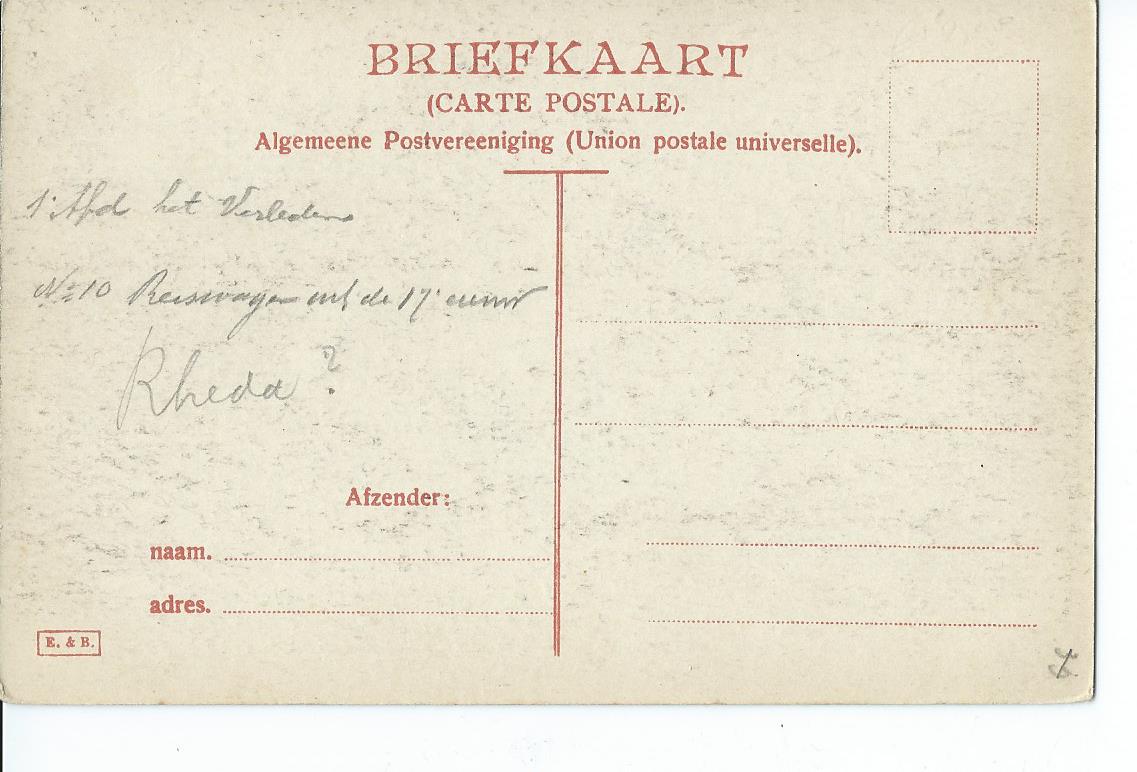 BRIEFKAART
(CARTE POSTALE).
Algemeene Postvereeniging (Union postale universelle).
1e Afd het Verleden
No 10 Reiswagen uit de 17e eeuw
Rheda ?
Afzender:
naam.
adres.
E. & B.